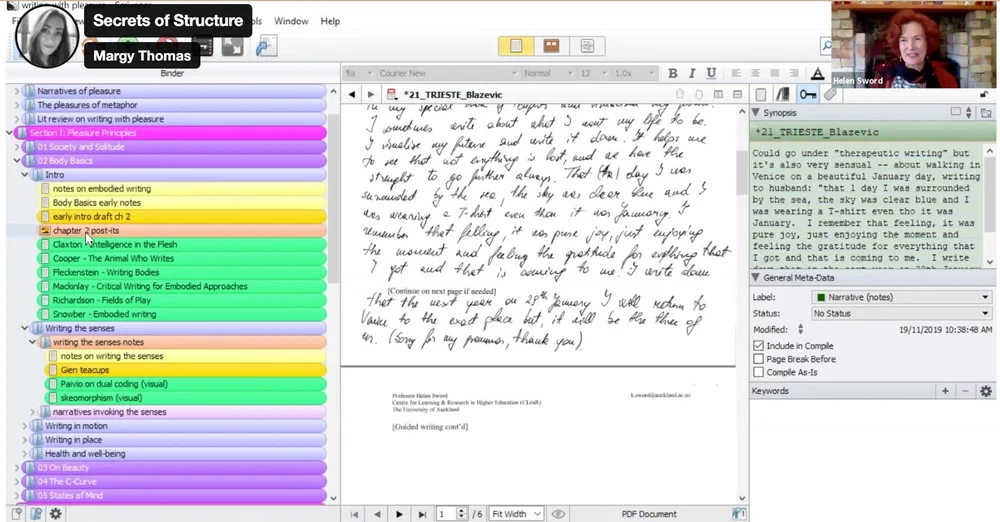 writing with pleasure - Scrivener
Secrets of Structure
Margy Thomas
Window
Help
Helen Sword
Courier New
Normal
12
1.0x
B I U
A
Binder
Narratives of pleasure
The pleasures of metaphor
Lit review on writing with pleasure
Section I: Pleasure Principles
01 Society and Solitude
02 Body Basics
Intro
notes on embodied writing
Body Basics early notes
early intro draft ch 2
chapter 2 post-its
Claxton - Intelligence in the Flesh
Cooper - The Animal Who Writes
Fleckenstein - Writing Bodies
Mackinlay - Critical Writing for Embodied Approaches
Richardson - Fields of Play
Snowber - Embodied writing
Writing the senses
writing the senses notes
notes on writing the senses
Gien teacups
Paivio on dual coding (visual)
skeomorphism (visual)
narratives invoking the senses
Writing in motion
Writing in place
Health and well-being
03 On Beauty
04 The C-Curve
05 States of Mind
*21_TRIESTE_Blazevic
I sometimes write about what I want my life to be.
I visualise my future and write it down. It helps me
to see that not everything is lost, and we have the
straught to go further always. That 1 day I was
surrounded by the sea, the sky was clear blue and I
was wearing a T-shirt even tho it was January. I
remember that felling, it was pure joy, just enjoying
the moment and feeling the gratitude for everything that
I got and that is coming to me. I write down
[Continue on next page if needed]
that the next year on 29th January I will return to
Venice to the exact place but, it will be the three of
us. (Sorry for my grammar, thank you).
Professor Helen Sword
Centre for Learning & Research in Higher Education (CLeaR)
The University of Auckland
h.sword@auckland.ac.nz
[Guided writing cont'd]
1
/ 6
Fit Width
PDF Document
Synopsis
*21_TRIESTE_Blazevic
Could go under "therapeutic writing" but
it's also very sensual -- about walking in
Venice on a beautiful January day, writing
to husband: "that 1 day I was surrounded
by the sea, the sky was clear blue and I
was wearing a T-shirt even tho it was
January. I remember that feeling, it was
pure joy, just enjoying the moment and
feeling the gratitude for everything that I
got and that is coming to me. I write
General Meta-Data
Label:
Narrative (notes)
Status:
No Status
Modified:
19/11/2019 10:38:48 AM
Include in Compile
Page Break Before
Compile As-Is
Keywords